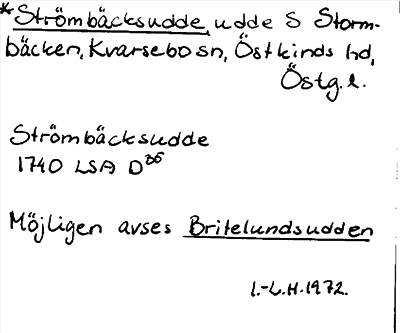 *Strömbäcksudde, udde S Storm-
bäcken, Kvarsebo sn, Östkinds hd,
Östg.l.
Strömbäcksudde
1740 LSA D
Möjligen avses Britelundsudden
I.-L.H.1972.